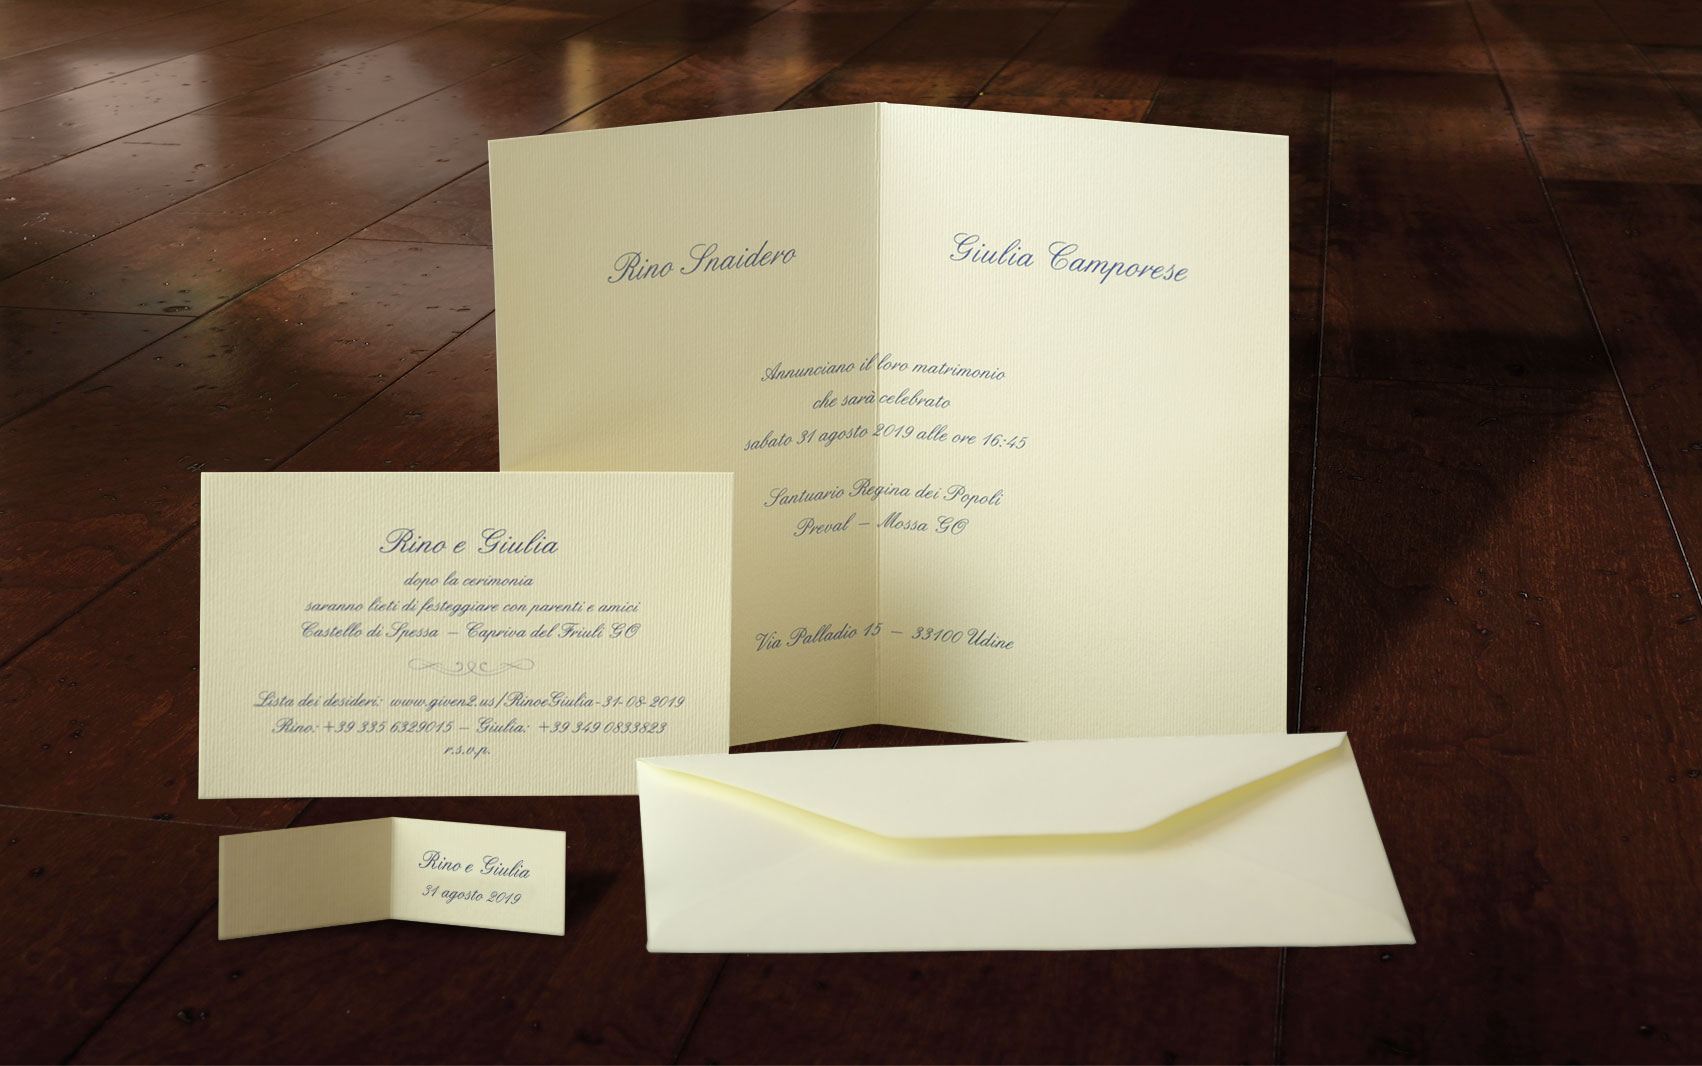 Rino Snaidero
Giulia Camporese
Annunciano il loro matrimonio
che sarà celebrato
sabato 31 agosto 2019 alle ore 16:45
Santuario Regina dei Popoli
Preval – Mossa GO
Via Palladio 15 – 33100 Udine
Rino e Giulia
dopo la cerimonia
saranno lieti di festeggiare con parenti e amici
Castello di Spessa – Capriva del Friuli GO
Lista dei desideri: www.given2.us/RinoeGiulia-31-08-2019
Rino: +39 335 6329015 – Giulia: +39 349 0833823
r.s.v.p.
Rino e Giulia
31 agosto 2019